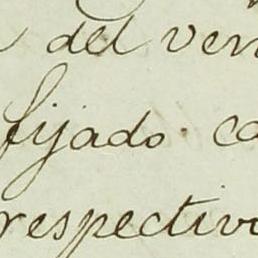 del ven
fijado. co
respectivo